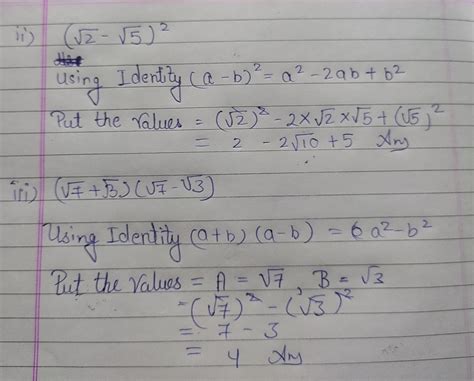 ii) (√2 - √5)²
Using Identity (a - b)² = a² - 2ab + b²
Put the Values = (√2)² - 2×√2×√5 + (√5)²
= 2 - 2√10 + 5 Ans
iii) (√7 + √3) (√7 - √3)
Using Identity (a + b) (a - b) = a² - b²
Put the Values = A = √7, B = √3
= (√7)² - (√3)²
= 7 - 3
= 4 Ans